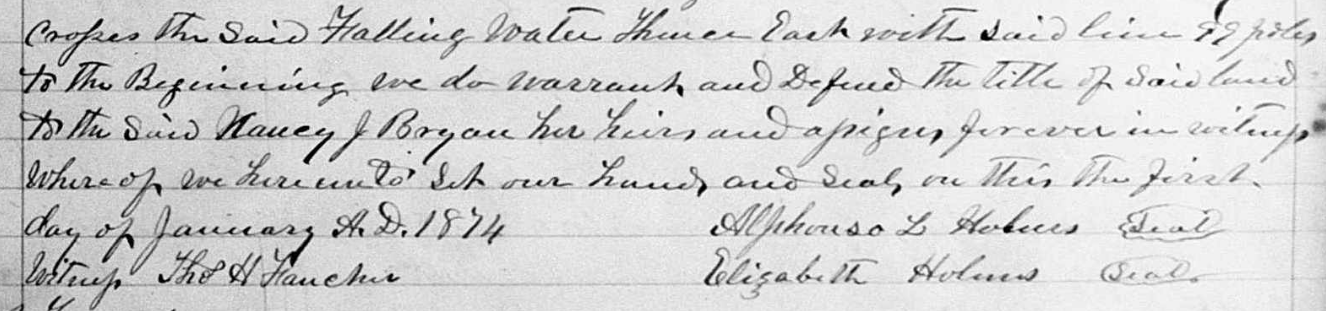 Crosses the Said Falling Water Thence East with said line 99 poles
to the Beginning we do warrant and Defend the title of Said land
to the Said Nancy J Bryan her heirs and assigns forever in witness
Whereof we hereunto Set our hands and Seals on this the first
day of January A.D. 1874 Alphonso L Holms Seal
Witness Thos H Fancher Elizabeth Holms Seal